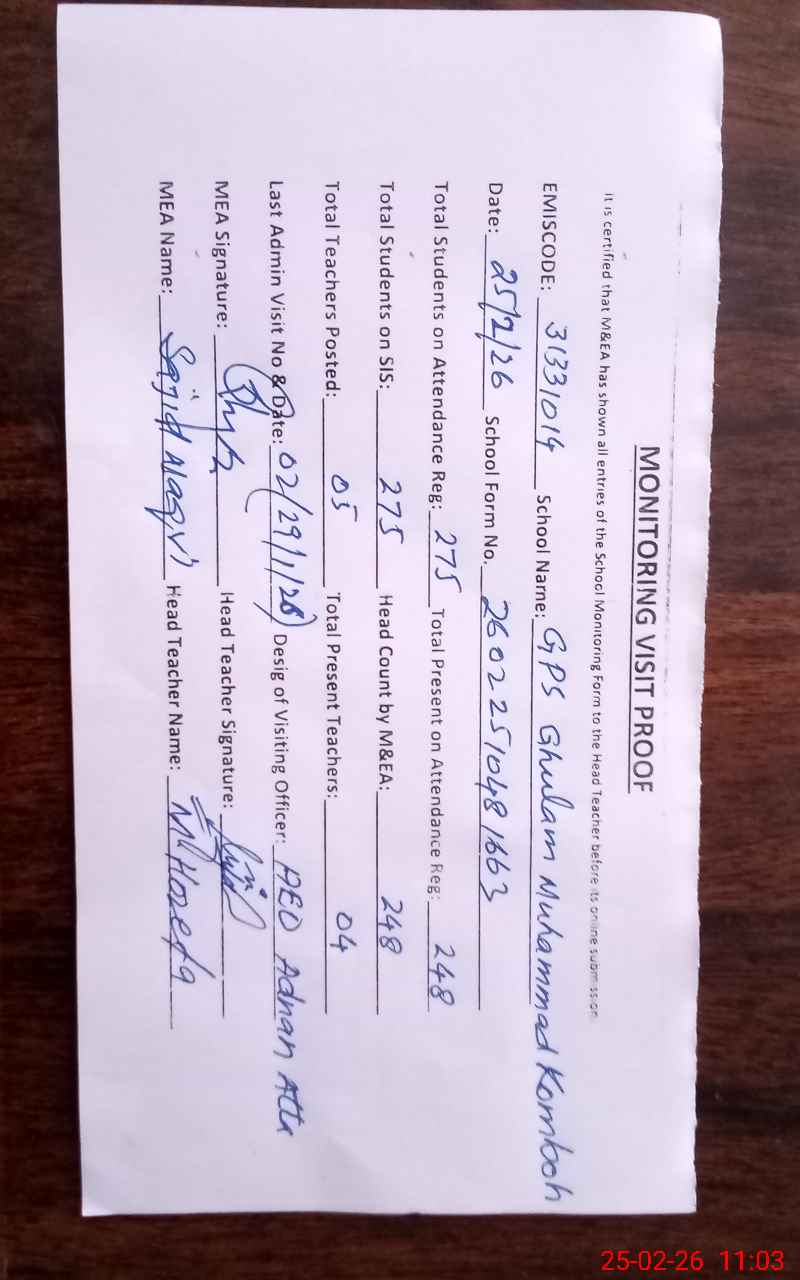 MONITORING VISIT PROOF
It is certified that M&EA has shown all entries of the School Monitoring Form to the Head Teacher before its online submission
EMISCODE: 31331014 School Name: GPS Ghulam Muhammad Kamboh
Date: 25/2/26 School Form No. 26022510481663
Total Students on Attendance Reg: 275 Total Present on Attendance Reg: 248
Total Students on SIS: 275 Head Count by M&EA: 248
Total Teachers Posted: 05 Total Present Teachers: 04
Last Admin Visit No & Date: 02/29/1/26 Desig of Visiting Officer: AEO Adnan Atta
MEA Signature: Head Teacher Signature:
MEA Name: Sajid Naqvi Head Teacher Name: M Hozefa
25-02-26 11:03